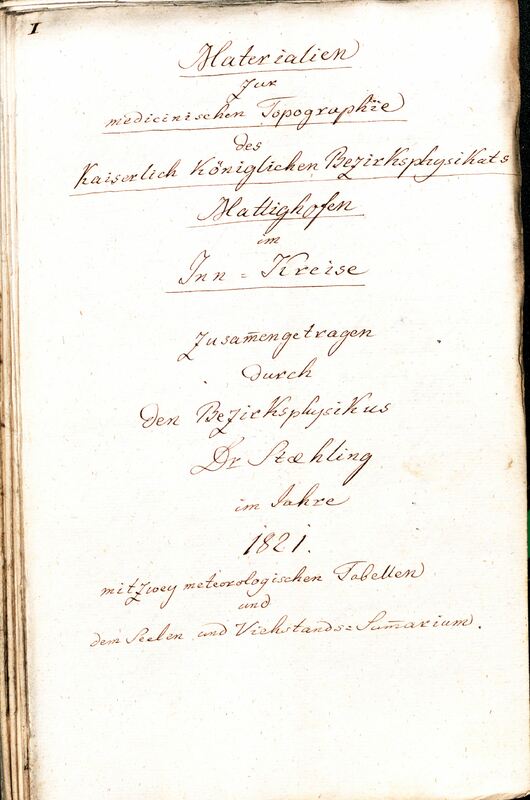 1
Materialien
zur
medicinischen Topographie
des
Kaiserlich Königlichen Bezirksphysikats
Mattighofen
im
Inn = Kreise
Zusam̄engetragen
durch
den Bezirksphysikus
Dr Stæhling
im Jahre
1821.
mit zwey meteorologischen Tabellen
und
dem Seelen und Viehstands=Sum̄arium.